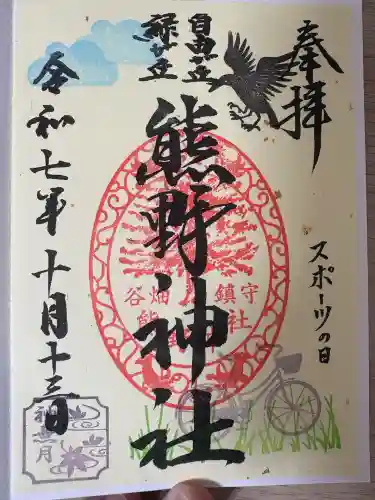 奉拝
スポーツの日
自由が丘
緑が丘
熊野神社
谷畑 鎮守
熊 社
令和七年十月十三日
神無月